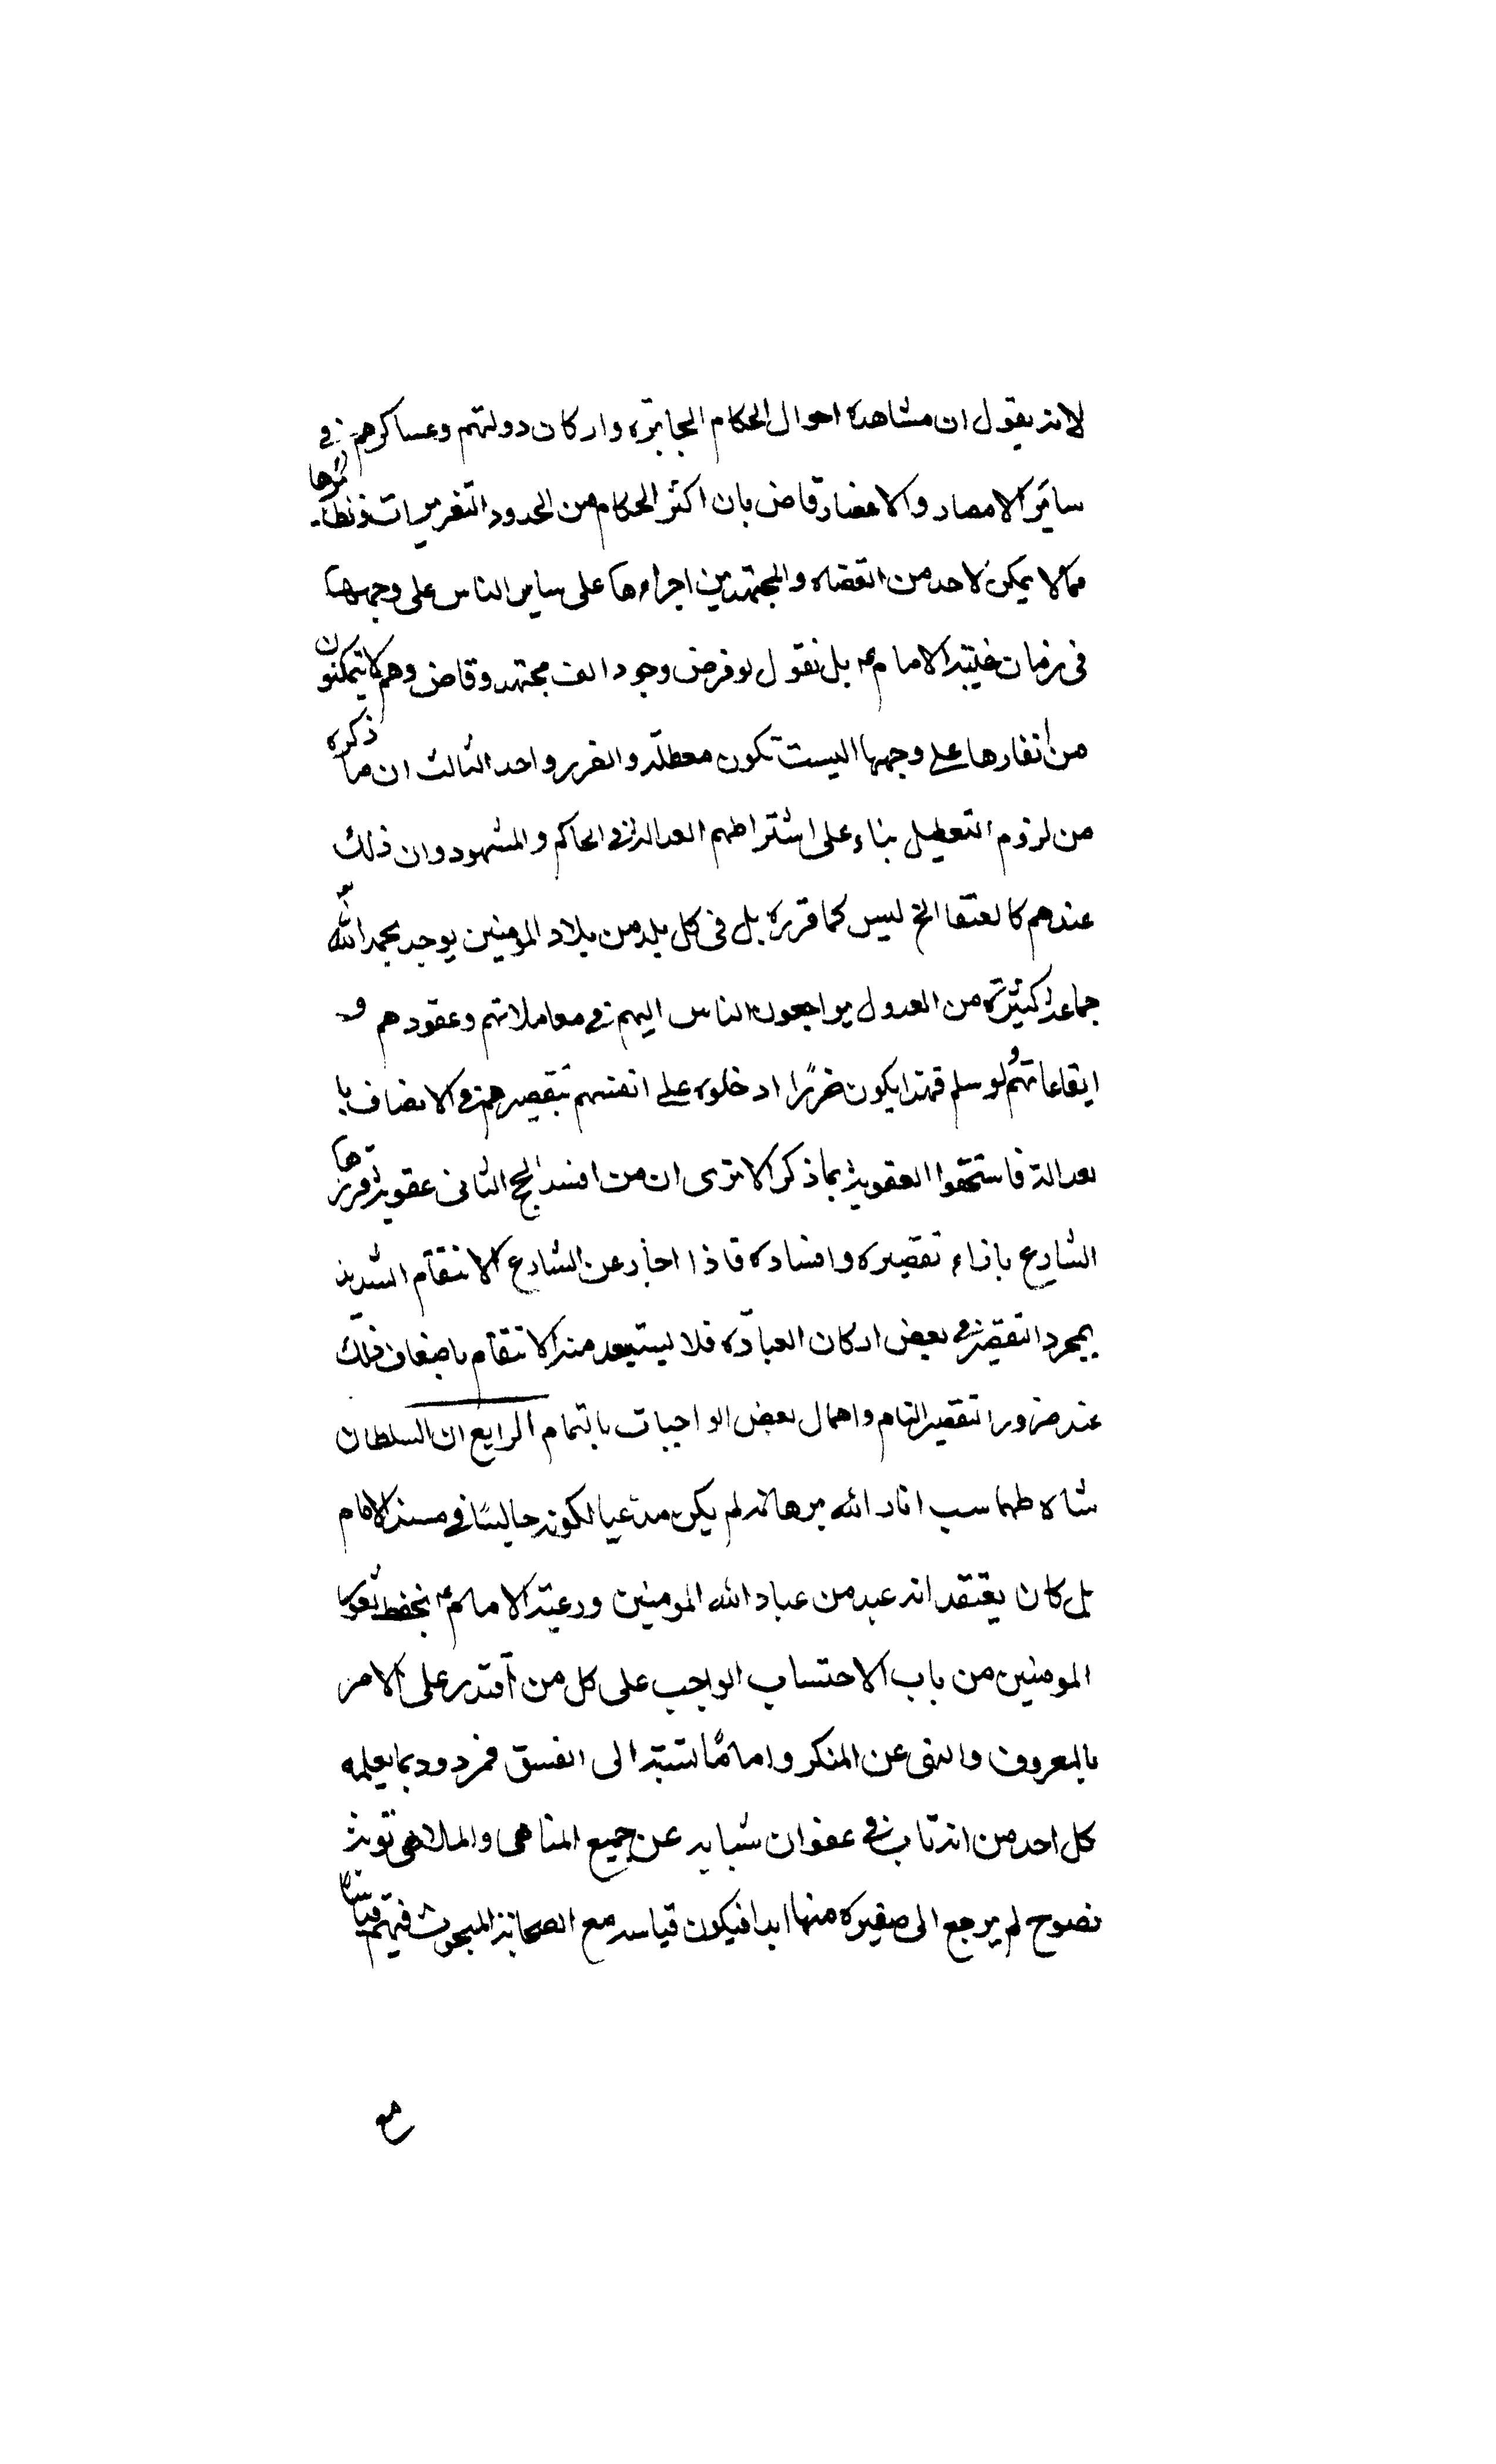 لانه يقول ان مشاهدة احوال الحكام الجابرة واركان دولتهم وعساكرهم في
ساير الامصار والاعصار قاض بان اكثر الحكام من الحدود التغريرات ونظائرها
مما لا يمكن لاحد من القضاه والمجتهدين اجراءها على ساير الناس على وجهها
في زمان غيبة الامام ع بل نقول لو فرض وجود الف مجتهد وقاض وهم لا يتمكنون
من انفاذها على وجهها اليست تكون معطلة والغرر واحد الثالث ان ما ذكره
من لزوم التعطيل بناء على اشتراطهم العدالة في الحاكم والشهود وان ذلك
عندهم كالعنقا الخ ليس كما قرره بل في كل بلد من بلاد المومنين يوجد بحمد الله
جماعة كثيرة من العدول يراجعون الناس اليهم في معاملاتهم وعقودهم و
ايقاعاتهم ولو سلم فهذا يكون ضررا ادخلوه على انفسهم بتقصيرهم في الاتصاف با
لعدالة فاستحقوا العقوبة بما ذكر الا ترى ان من افسد الحج الثاني عقوبة قررها
الشارع بازاء تقصيره وافساده فاذا اجاز عن الشارع الانتقام الشديد
بمجرد التقصير في بعض اركان العبادة فلا يستبعد منه الانتقام باضعاف ذلك
عند ضرور التقصير التام واهمال بعض الواجبات بالتمام الرابع ان السلطان
شاه طهماسب انار الله برهانه لم يكن مدعيا لكونه جالسا في مسند الامام
بل كان يعتقد انه عبد من عباد الله المومنين ورعية الامام ع يحفظ ثغور
المومنين من باب الاحتساب الواجب على كل من اقتدر على الامر
بالمعروف والنهى عن المنكر واما ما نسبته الى الفسق فمردود بما يعلمه
كل احد من انه تاب في عنفوان شبابه عن جميع المناهى والملاهى توبة
نصوح لم يرجع الى صغيرة منها ابدا فيكون قياسه مع الصحابة المبحوث فيهم قياسا
مع